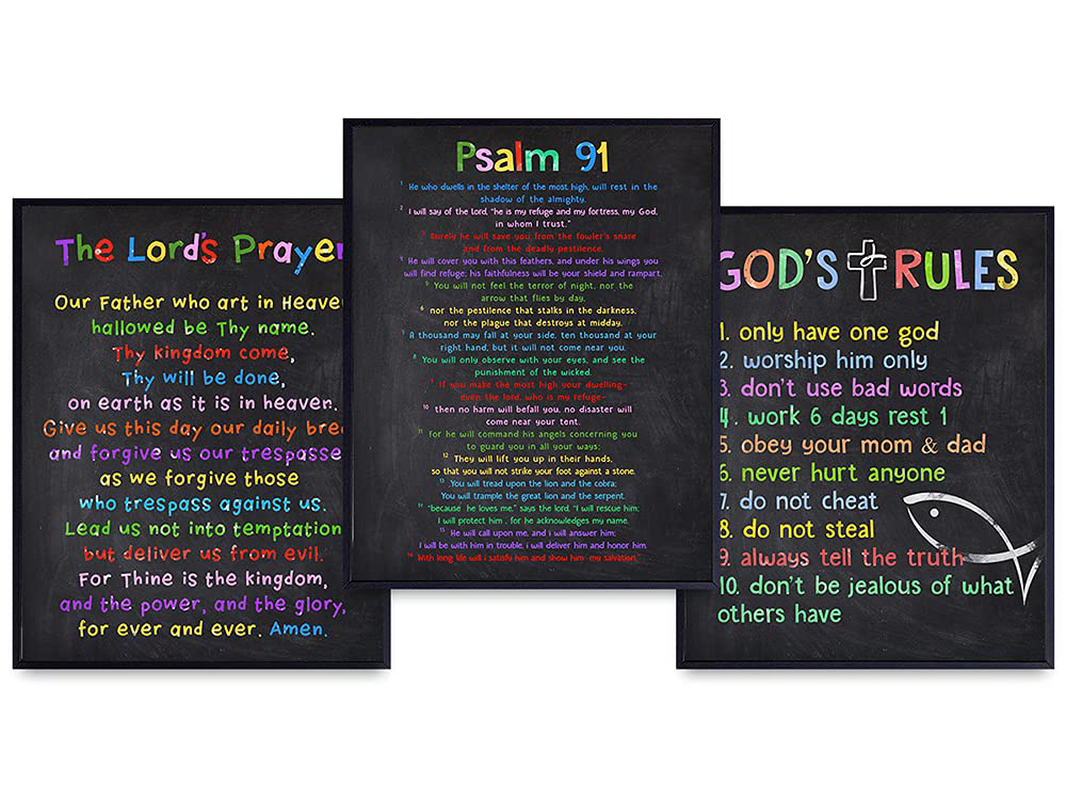 The Lord's Prayer
Our Father who art in Heave
hallowed be Thy name.
Thy kingdom come,
Thy will be done,
on earth as it is in heaven.
Give us this day our daily brea
and forgive us our trespasse
as we forgive those
who trespass against us.
Lead us not into temptation
but deliver us from evil.
For Thine is the kingdom,
and the power, and the glory,
for ever and ever. Amen.
Psalm 91
1 He who dwells in the shelter of the most high, will rest in the
shadow of the almighty.
2 I will say of the lord, "he is my refuge and my fortress, my God,
in whom I trust."
3 Surely he will save you from the fowler's snare
and from the deadly pestilence.
4 He will cover you with this feathers, and under his wings you
will find refuge; his faithfulness will be your shield and rampart.
5 You will not feel the terror of night, nor the
arrow that flies by day,
6 nor the pestilence that stalks in the darkness,
nor the plague that destroys at midday.
7 A thousand may fall at your side, ten thousand at your
right hand, but it will not come near you.
8 You will only observe with your eyes, and see the
punishment of the wicked.
9 If you make the most high your dwelling-
even the lord, who is my refuge-
10 then no harm will befall you, no disaster will
come near your tent.
11 For he will command his angels concerning you
to guard you in all your ways;
12 They will lift you up in their hands,
so that you will not strike your foot against a stone.
13 You will tread upon the lion and the cobra;
You will trample the great lion and the serpent.
14 "because he loves me," says the lord, "I will rescue him;
I will protect him , for he acknowledges my name.
15 He will call upon me, and i will answer him;
I will be with him in trouble, i will deliver him and honor him.
16 With long life will i satisfy him and show him my salvation."
GOD'S RULES
1. only have one god
2. worship him only
3. don't use bad words
4. work 6 days rest 1
5. obey your mom & dad
6. never hurt anyone
7. do not cheat
8. do not steal
9. always tell the truth
10. don't be jealous of what
others have